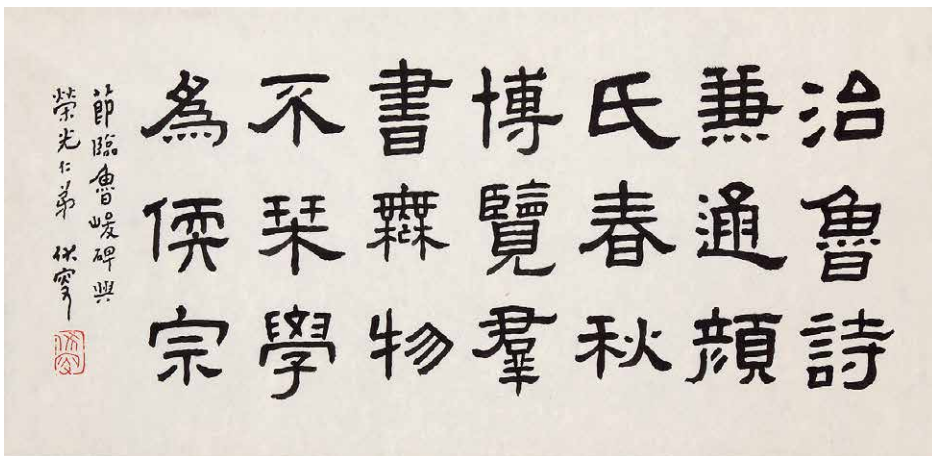 治魯詩
兼通顏
氏春秋
博覽羣
書無物
不栞學
為偄宗
節臨魯峻碑與
榮光仁弟